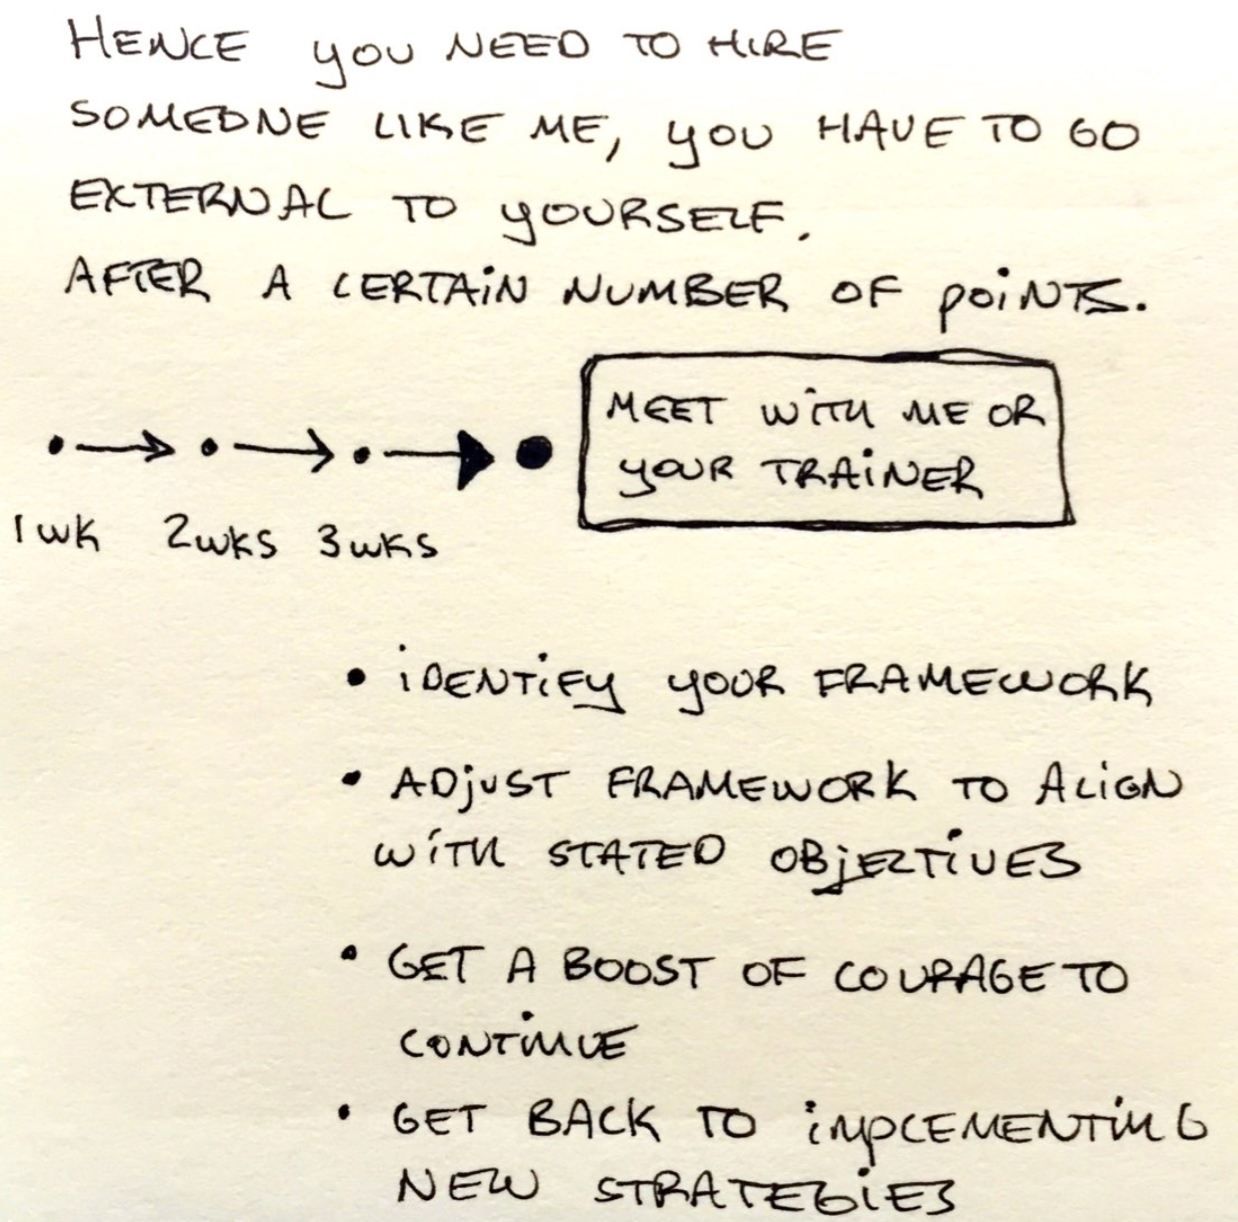 HENCE YOU NEED TO HIRE
SOMEONE LIKE ME, YOU HAVE TO GO
EXTERNAL TO YOURSELF.
AFTER A CERTAIN NUMBER OF POINTS.
MEET WITH ME OR
YOUR TRAINER
1wk 2wks 3wks
• IDENTIFY YOUR FRAMEWORK
• ADJUST FRAMEWORK TO ALIGN
WITH STATED OBJECTIVES
• GET A BOOST OF COURAGE TO
CONTINUE
• GET BACK TO IMPLEMENTING
NEW STRATEGIES